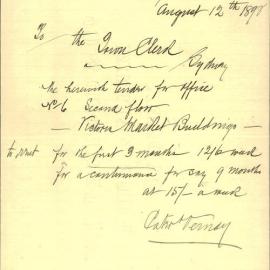 August 12th 1898
To the Town Clerk
Sydney
We herewith tender for office
No 6 Second floor
– Victoria Market Buildings –
to rent for the first 3 months 12/6 week
for a continuance for say 9 months
at 15/- a week
Vernay